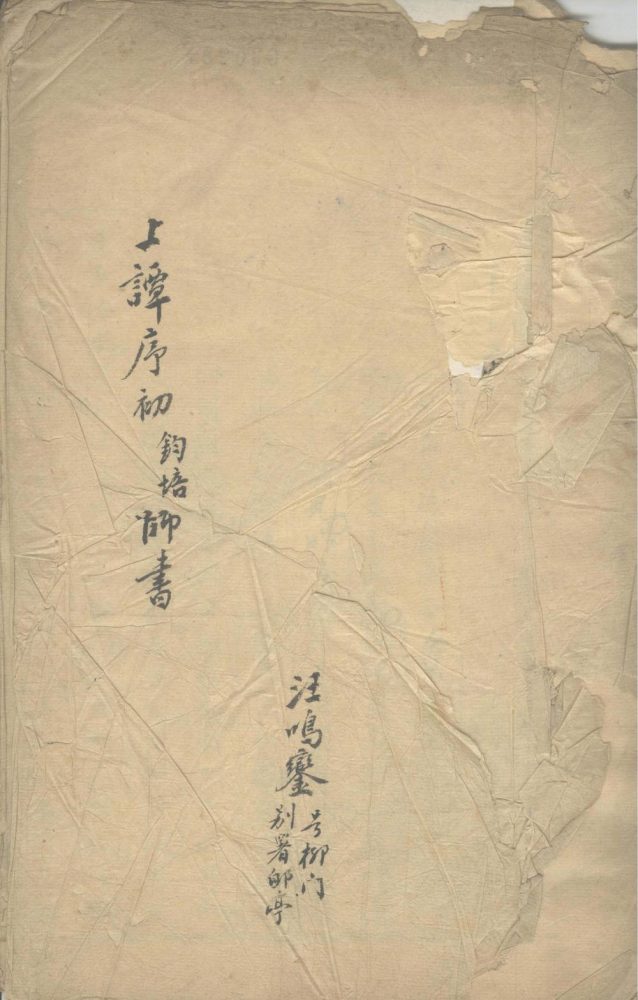 上譚序初鈞培師書
汪鳴鑾
号柳门
别署郋亭